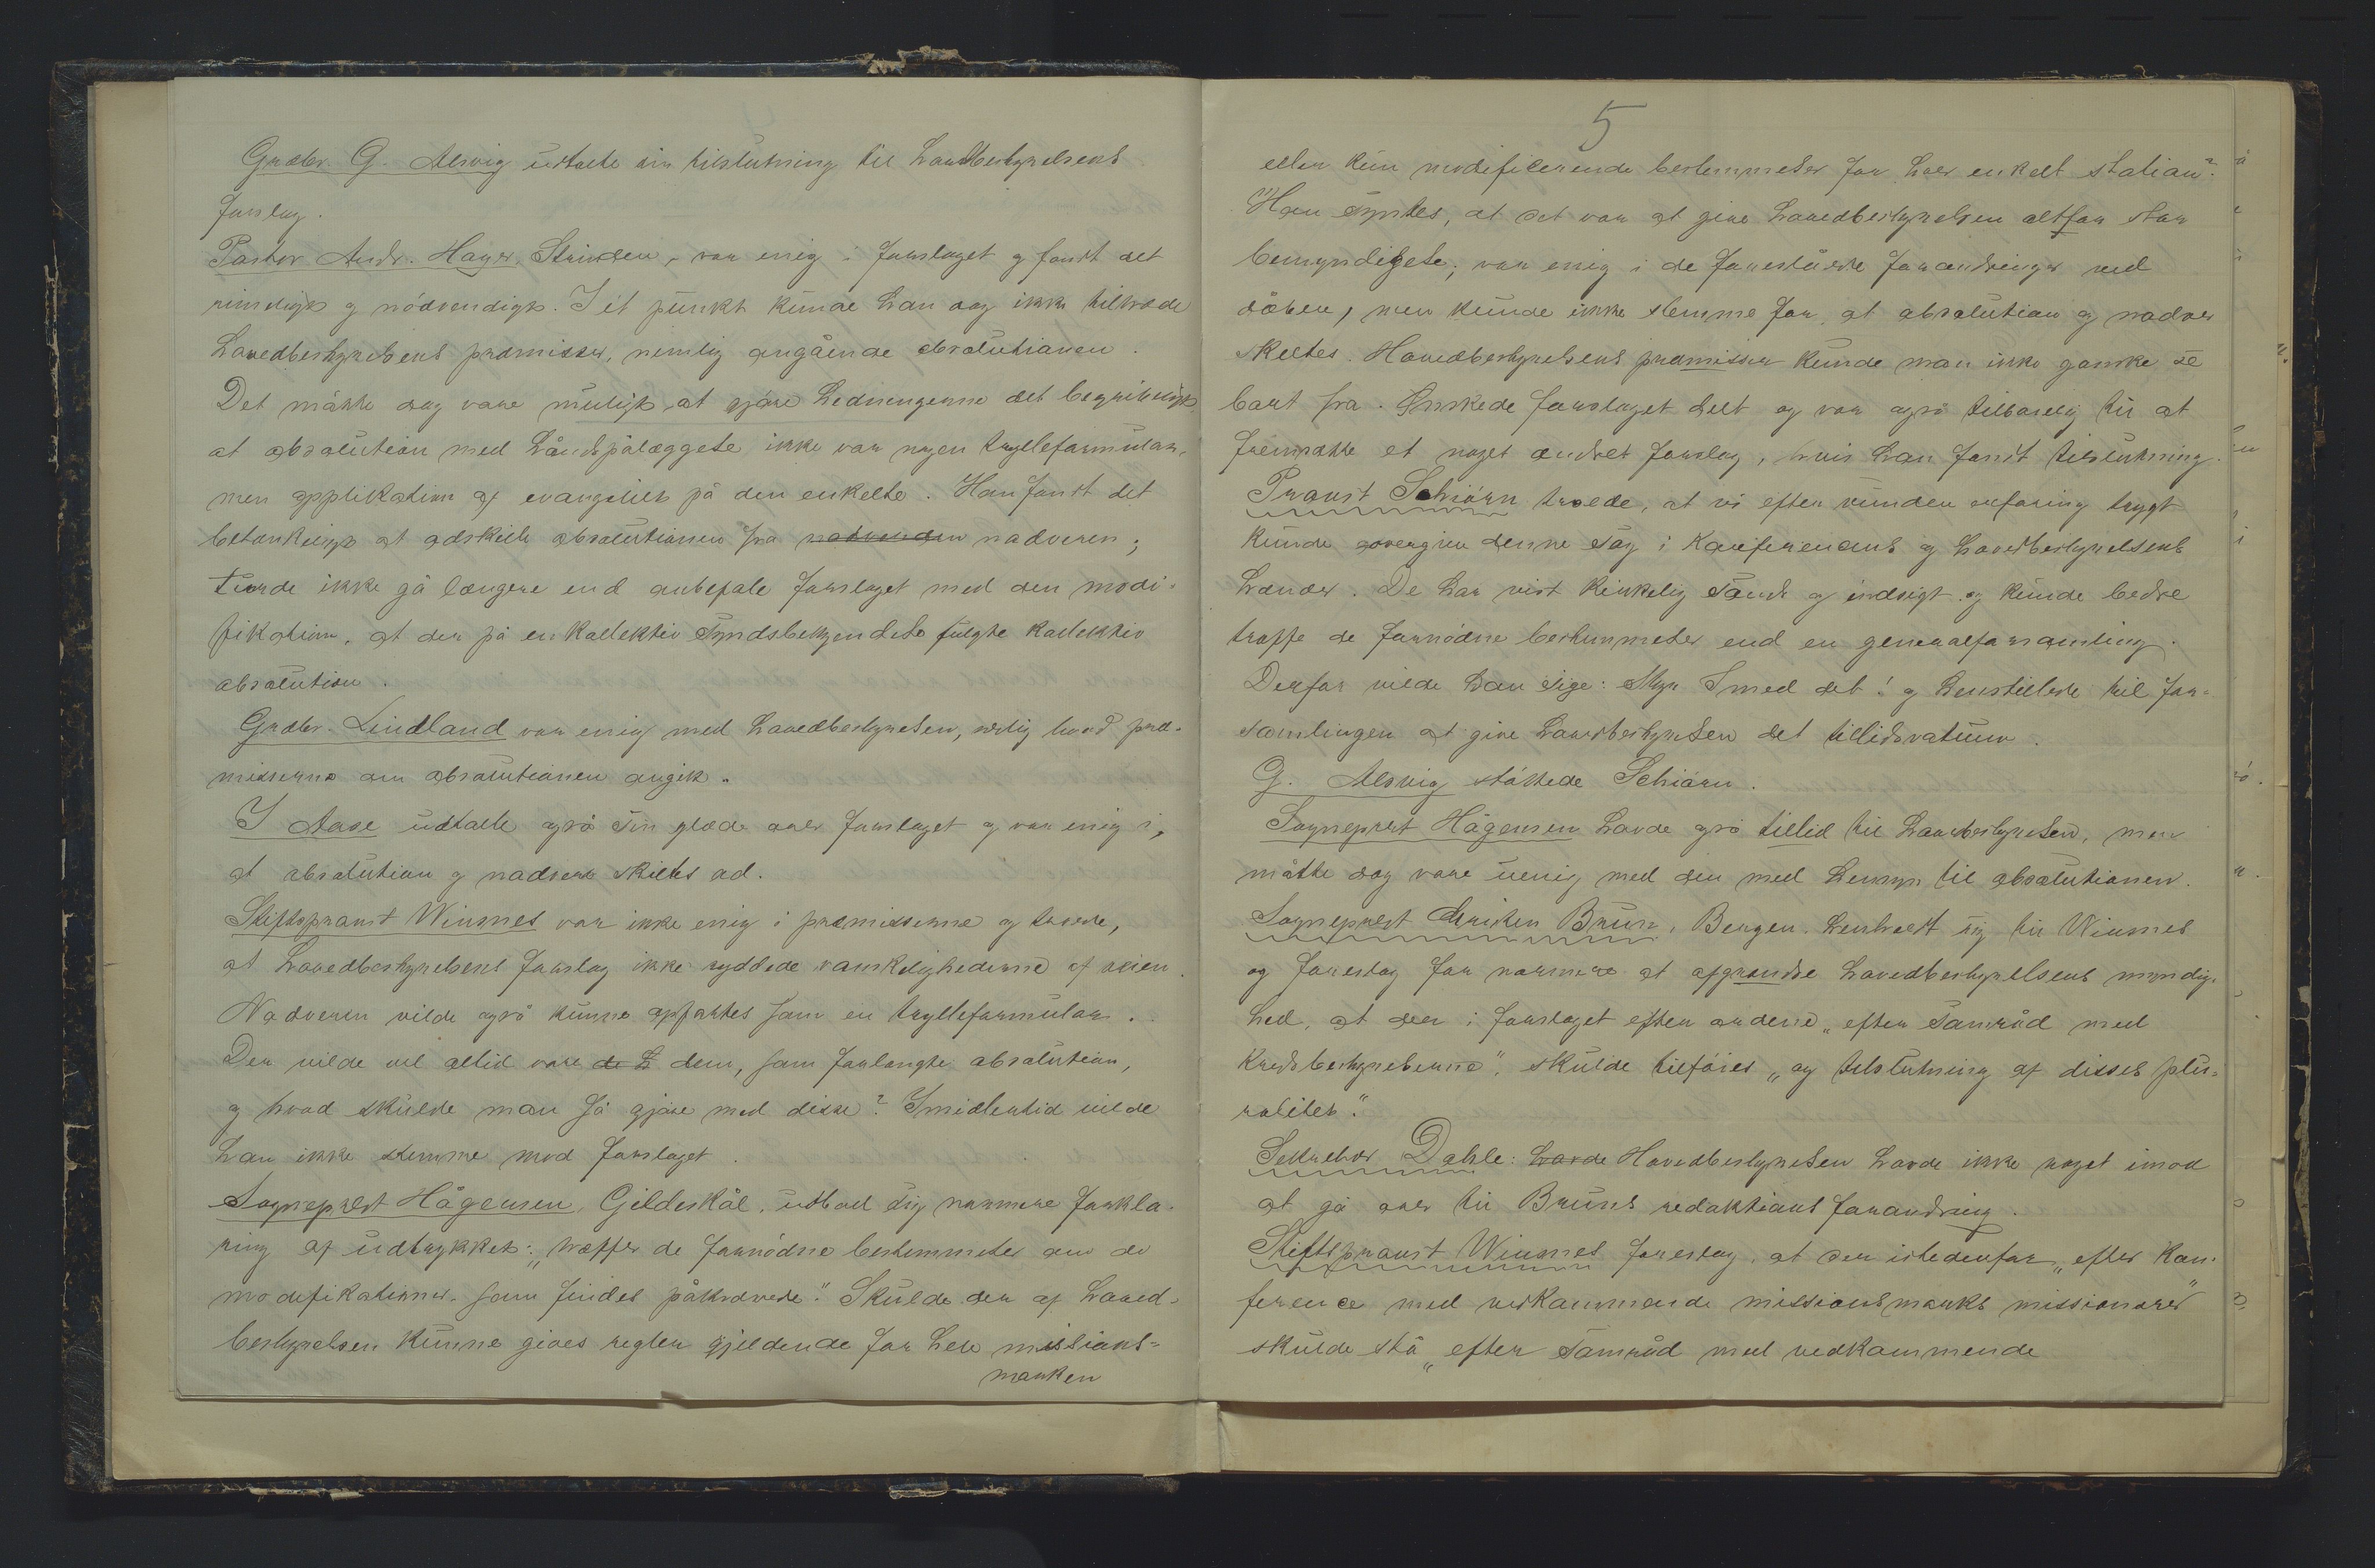 Grdbr. G. Alsvig udtalte sin tilslutning til Landbestyrelsens
forslag.
Pastor Andr. Hager, Strinden, var enig i forslaget og fandt det
rimeligt og nödvendigt. I et punkt kunde han dog ikke tiltræde
hovedbestyrelsens præmisser, nemlig angående absolutionen.
Det måtte dog være muligt at gjöre hedningerne det begribeligt,
at absolution med håndspålæggelse ikke var nogen trylleformular,
men applikation af evangeliet på den enkelte. Han fandt det
betænkeligt at adskille absolutionen fra nadverden nadveren;
turde ikke gå længere end anbefale forslaget med den modi-
fikation, at der på en kollektiv syndsbekjendelse fulgte kollektiv
absolution.
Grdbr. Lindland var enig med hovedbestyrelsen, særlig hvad præ-
misserne om absolutionen angik.
I Aase udtalte også sin glæde over forslaget og var enig i,
at absolution og nadvere skiltes ad.
Stiftsprovst Wiumes var ikke enig i præmisserne og troede,
at hovedbestyrelsens forslag ikke ryddede vanskelighederne af veien.
Nadveren vilde også kunne opfattes som en trylleformular.
Der vilde vel altid være de L dem, som forlangte absolution,
og hvad skulde man så gjöre med disse? Imidlertid vilde
han ikke stemme mod forslaget.
Sogneprest Hågensen, Gildeskål, udbad sig nærmere forkla-
ring af udtrykket: „træffer de fornödne bestemmelser om de
modifikationer som findes påkrævede." Skulde der af hoved-
bestyrelsen kunne gives regler gjeldende for hele missions-
marken
5
eller kun modificerende bestemmelser for hver enkelt station?
Han syntes, at det var at give hovedbestyrelsen altfor stor
bemyndigelse; var enig i de foreslåede forandringer ved
dåben, men kunde ikke stemme for, at absolution og nadver
skiltes. Hovedbestyrelsens præmisser kunde man ikke ganske se
bort fra. Önskede forslaget delt og var også tilböielig til at
fremsætte et noget ændret forslag, hvis han fandt tilslutning.
Provst Schiörn troede, at vi efter vunden erfaring trygt
kunde overgive denne sag i konferencens og hovedbestyrelsens
hænder. De har vist kirkelig sands og indsigt og kunde bedre
træffe de fornödne bestemmelser end en generalforsamling.
Derfor vilde han sige: Skyn I med det! og henstillede til for-
samlingen at give hovedbestyrelsen det tillidsvotum.
G. Alsvig stöttede Schiörn.
Sogneprest Hågensen havde også tillid til hovedbestyrelsen, men
måtte dog være uenig med den med hensyn til absolutionen.
Sogneprest Christen Brun, Bergen, henholdt sig til Wiumes
og foreslog for nærmere at afgrændse hovedbestyrelsens myndig-
hed, at der i forslaget efter ordene „efter samråd med
kredsbestyrelserne", skulde tilföies „og tilslutning af disses plu-
ralitet."
Sekretær Dahle: havde Hovedbestyrelsen havde ikke noget imod
at gå over til Bruns redaktions forandring.
Stiftsprovst Wiumes foreslog, at der istedenfor „efter kon-
ference med vedkommende missionsmarks missionærer"
skulde stå „efter samråd med vedkommende